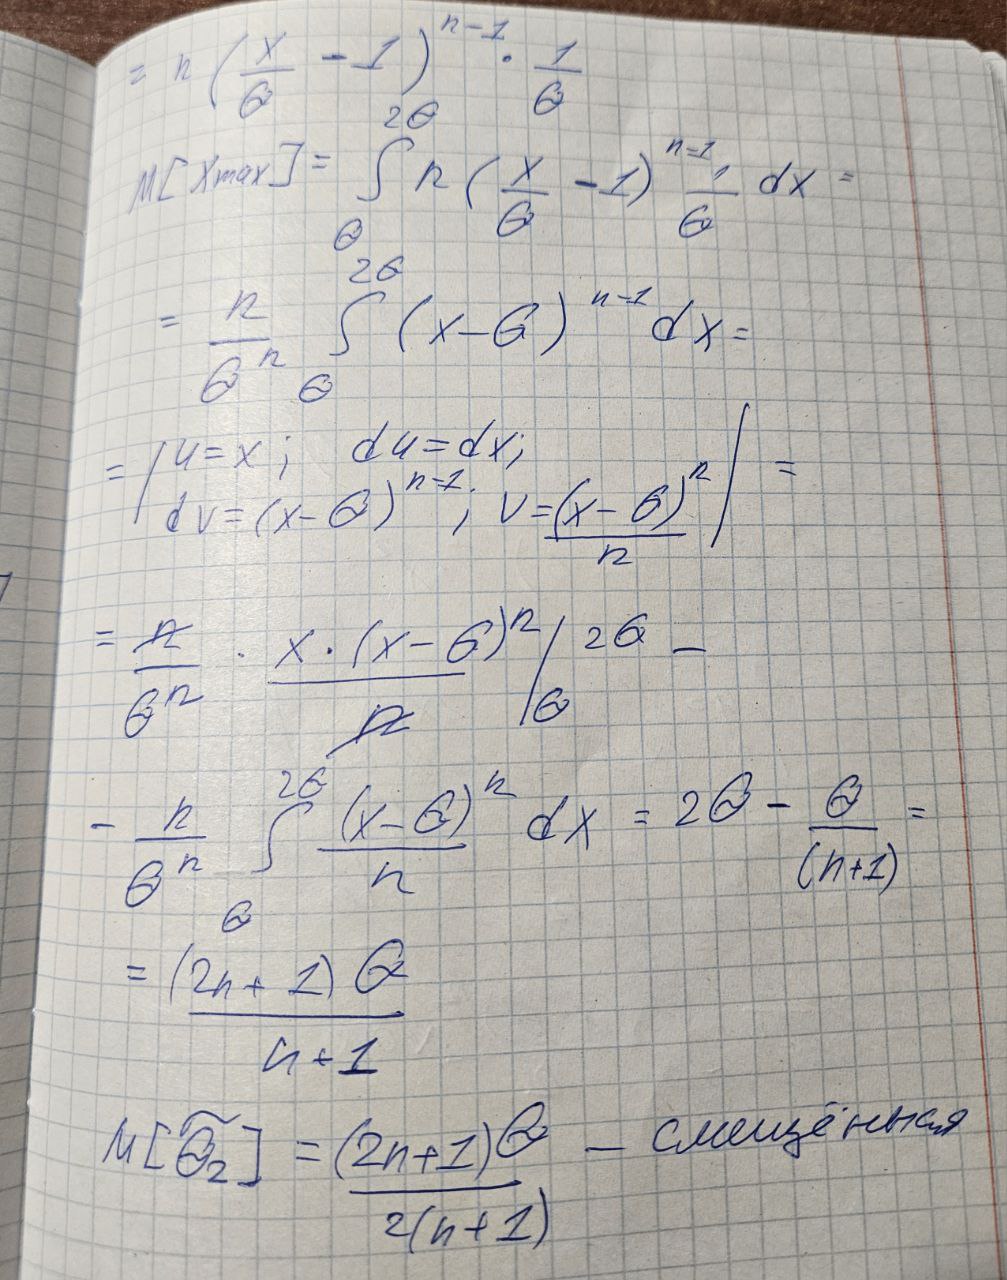 = n (x/θ − 1)^(n−1) · 1/θ
M[Xmax] = ∫_θ^(2θ) n (x/θ − 1)^(n−1) 1/θ dx =
= n/θ^n ∫_θ^(2θ) (x−θ)^(n−1) dx =
= | u = x; du = dx;
dv = (x−θ)^(n−1); v = (x−θ)^n/n | =
= n/θ^n · x·(x−θ)^n/n |_θ^(2θ) −
− n/θ^n ∫_θ^(2θ) (x−θ)^n/n dx = 2θ − θ/(n+1) =
= (2n+1)θ/(n+1)
M[θ̃₂] = (2n+1)θ/(2(n+1)) − смещённая